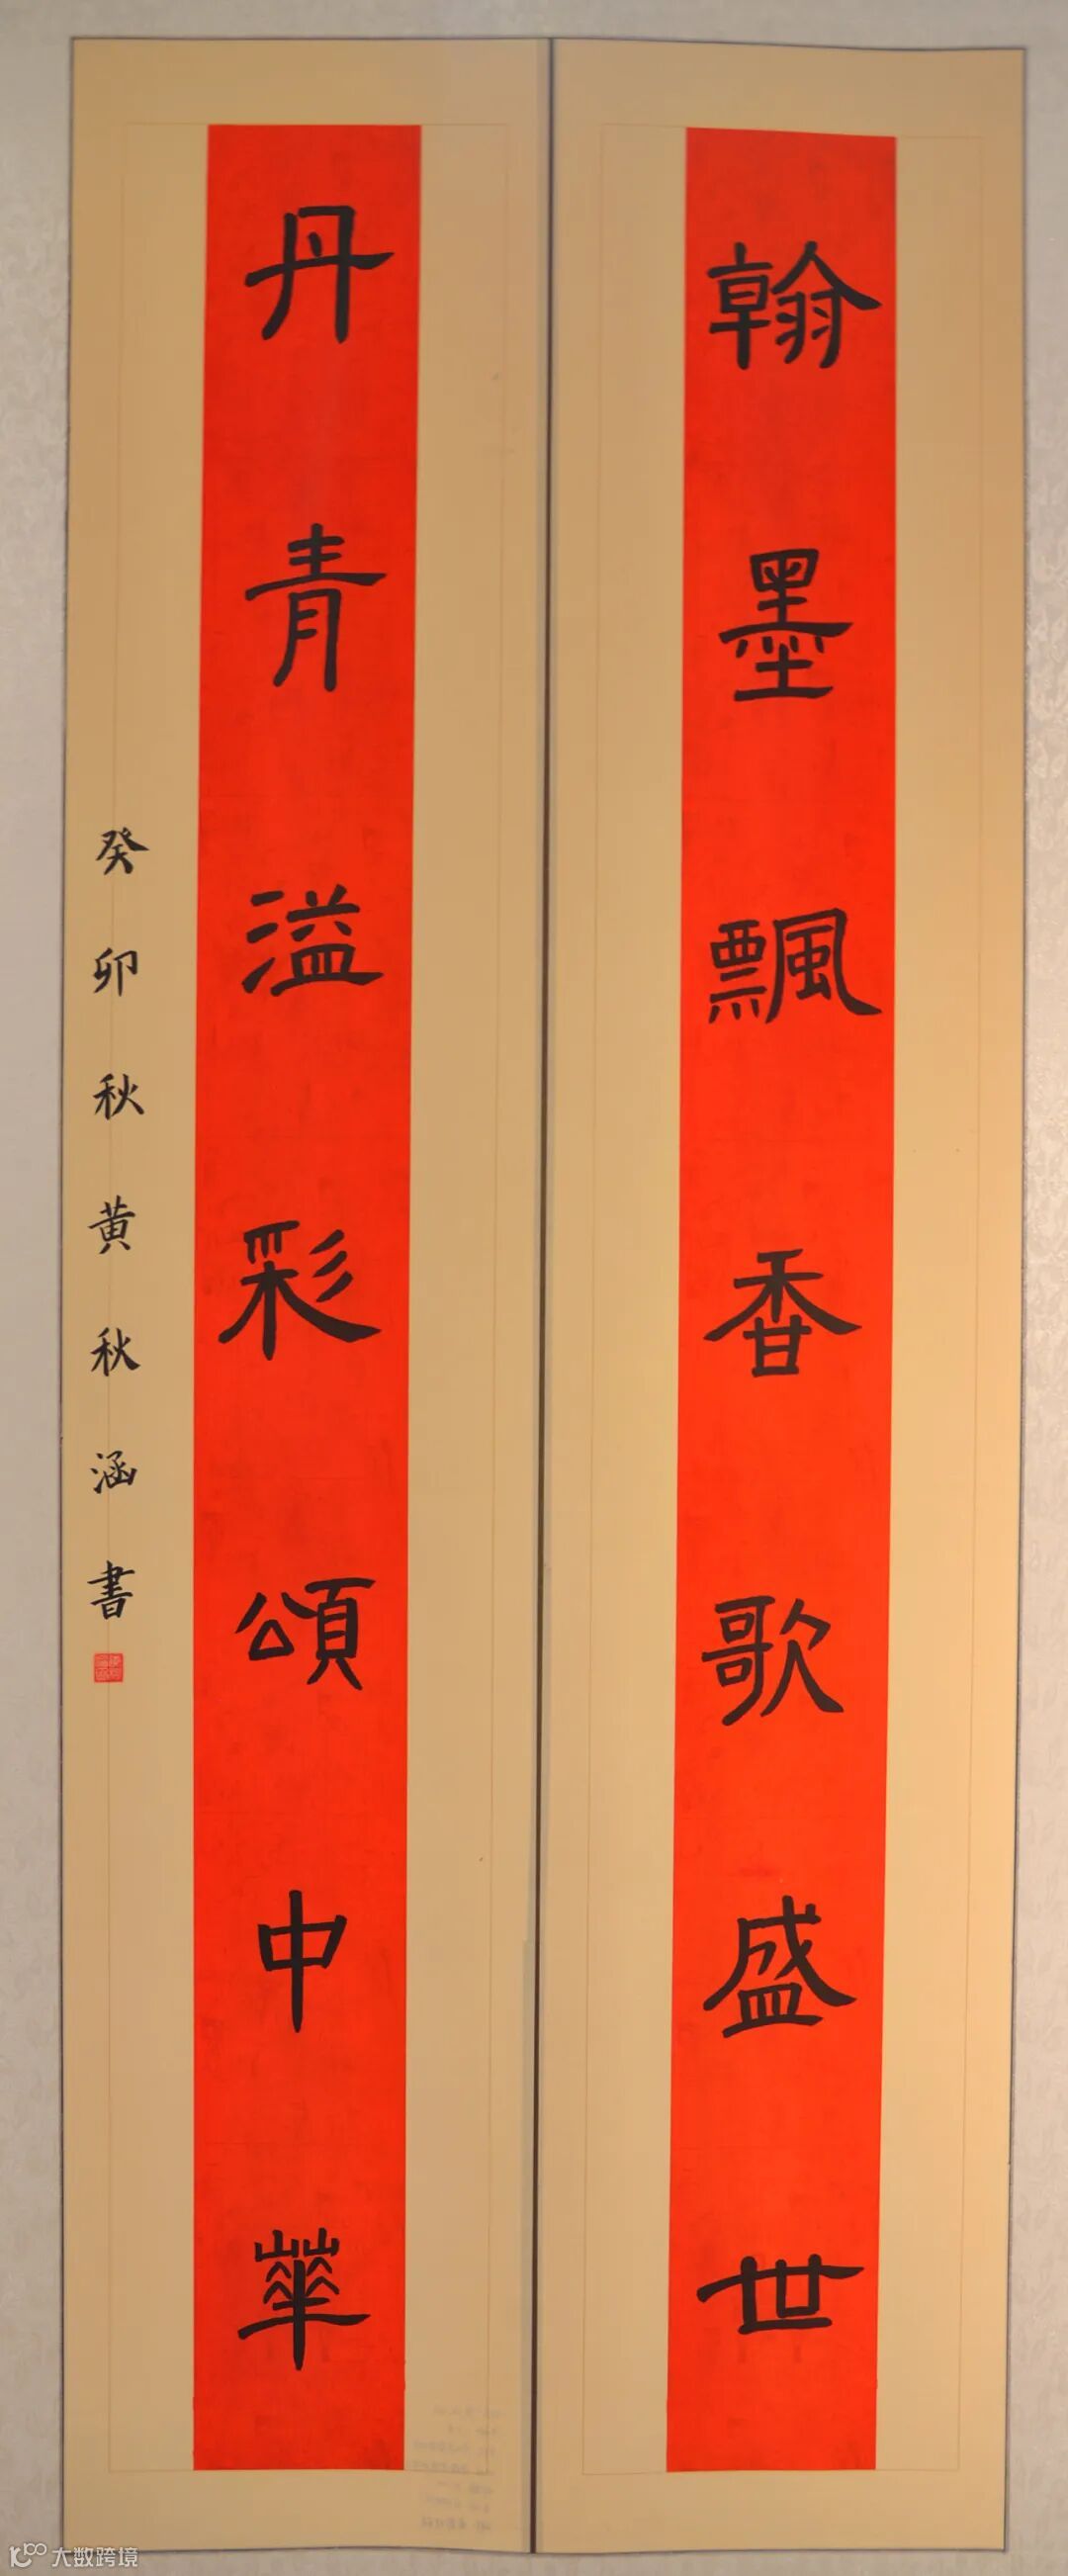 翰墨飄香歌盛世
丹青溢彩頌中華
癸卯秋黄秋涵書
大数跨境